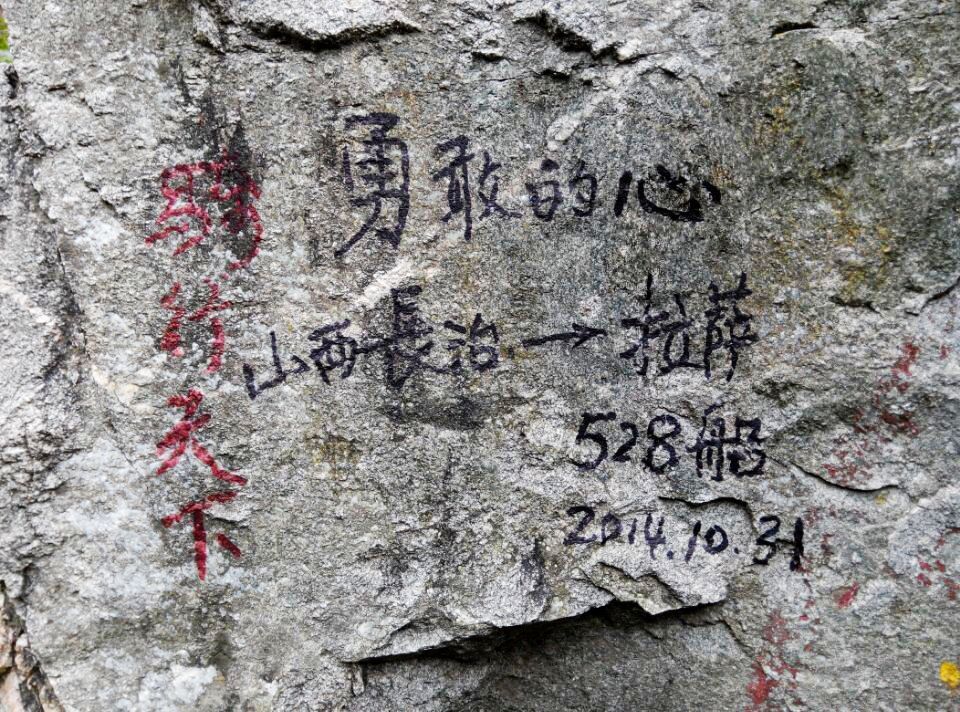 骑行天下
勇敢的心
山西長治→拉萨
528船
2014.10.31